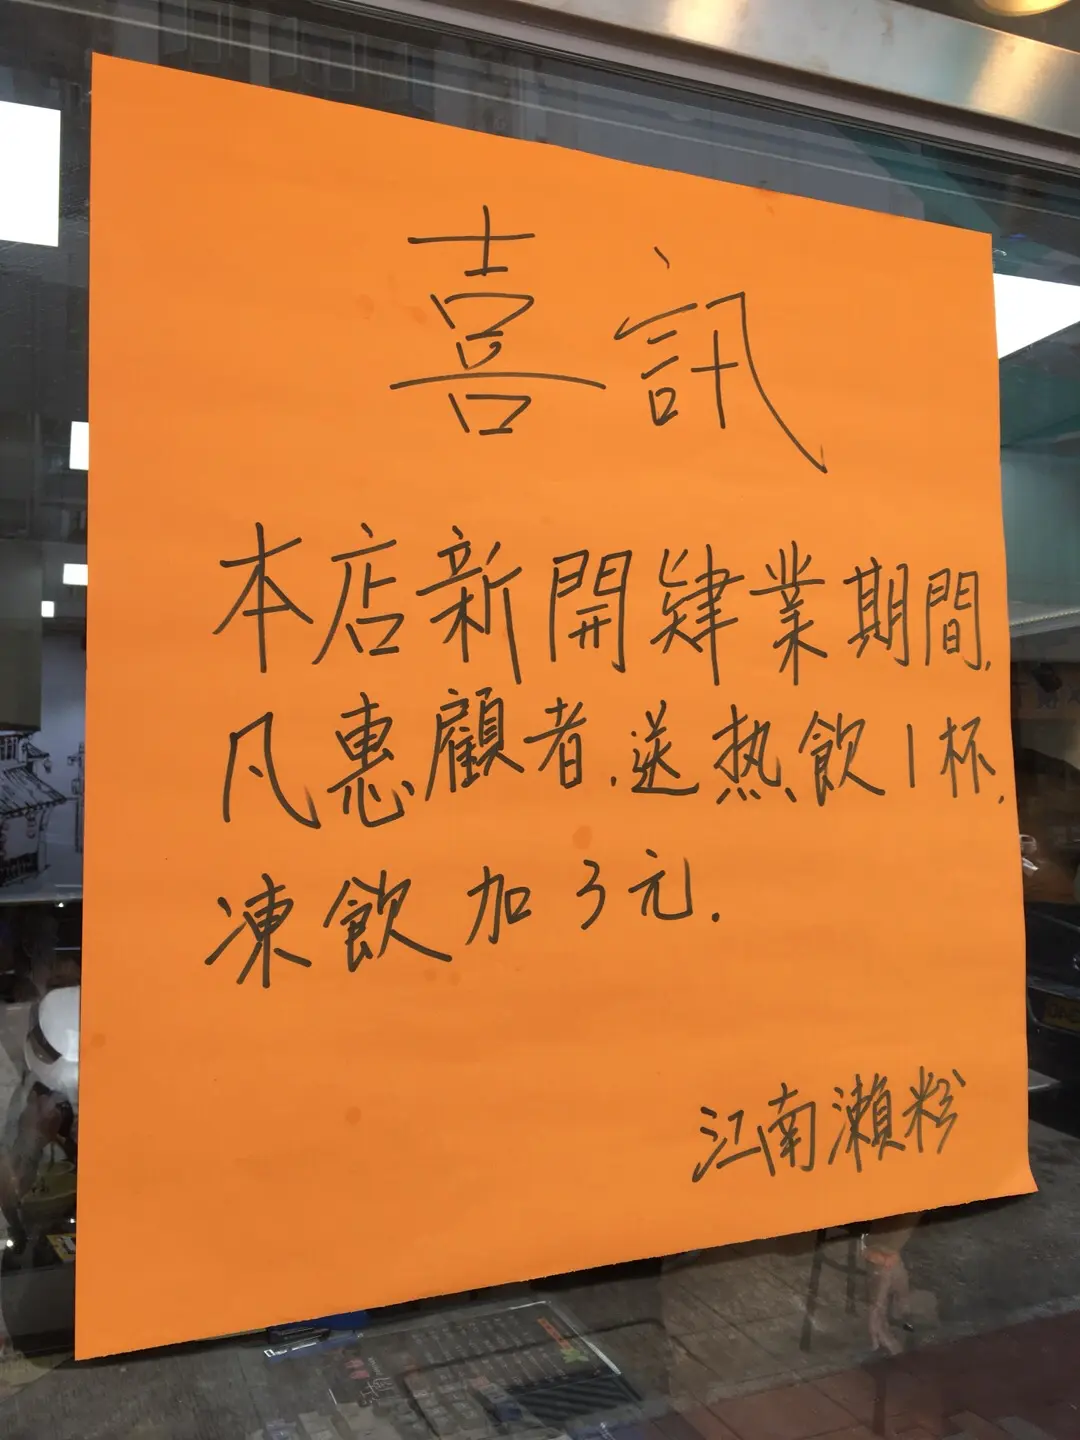 喜訊
本店新開肄業期間,
凡惠顧者.送热飲1杯,
凍飲加3元.
江南瀨粉